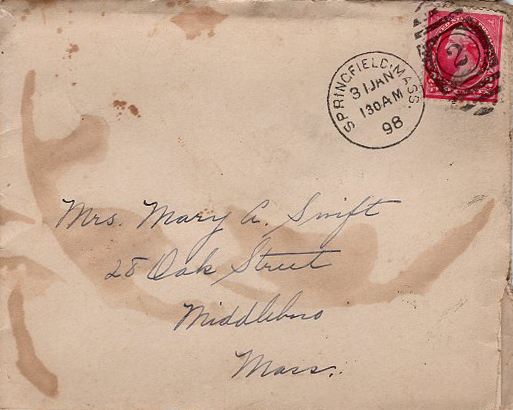 SPRINGFIELD, MASS.
31 JAN
130 AM
98
2
Mrs. Mary A. Swift
28 Oak Street
Middleboro
Mass.